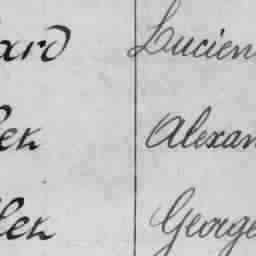 ard Lucien
lek Alexan
llek George